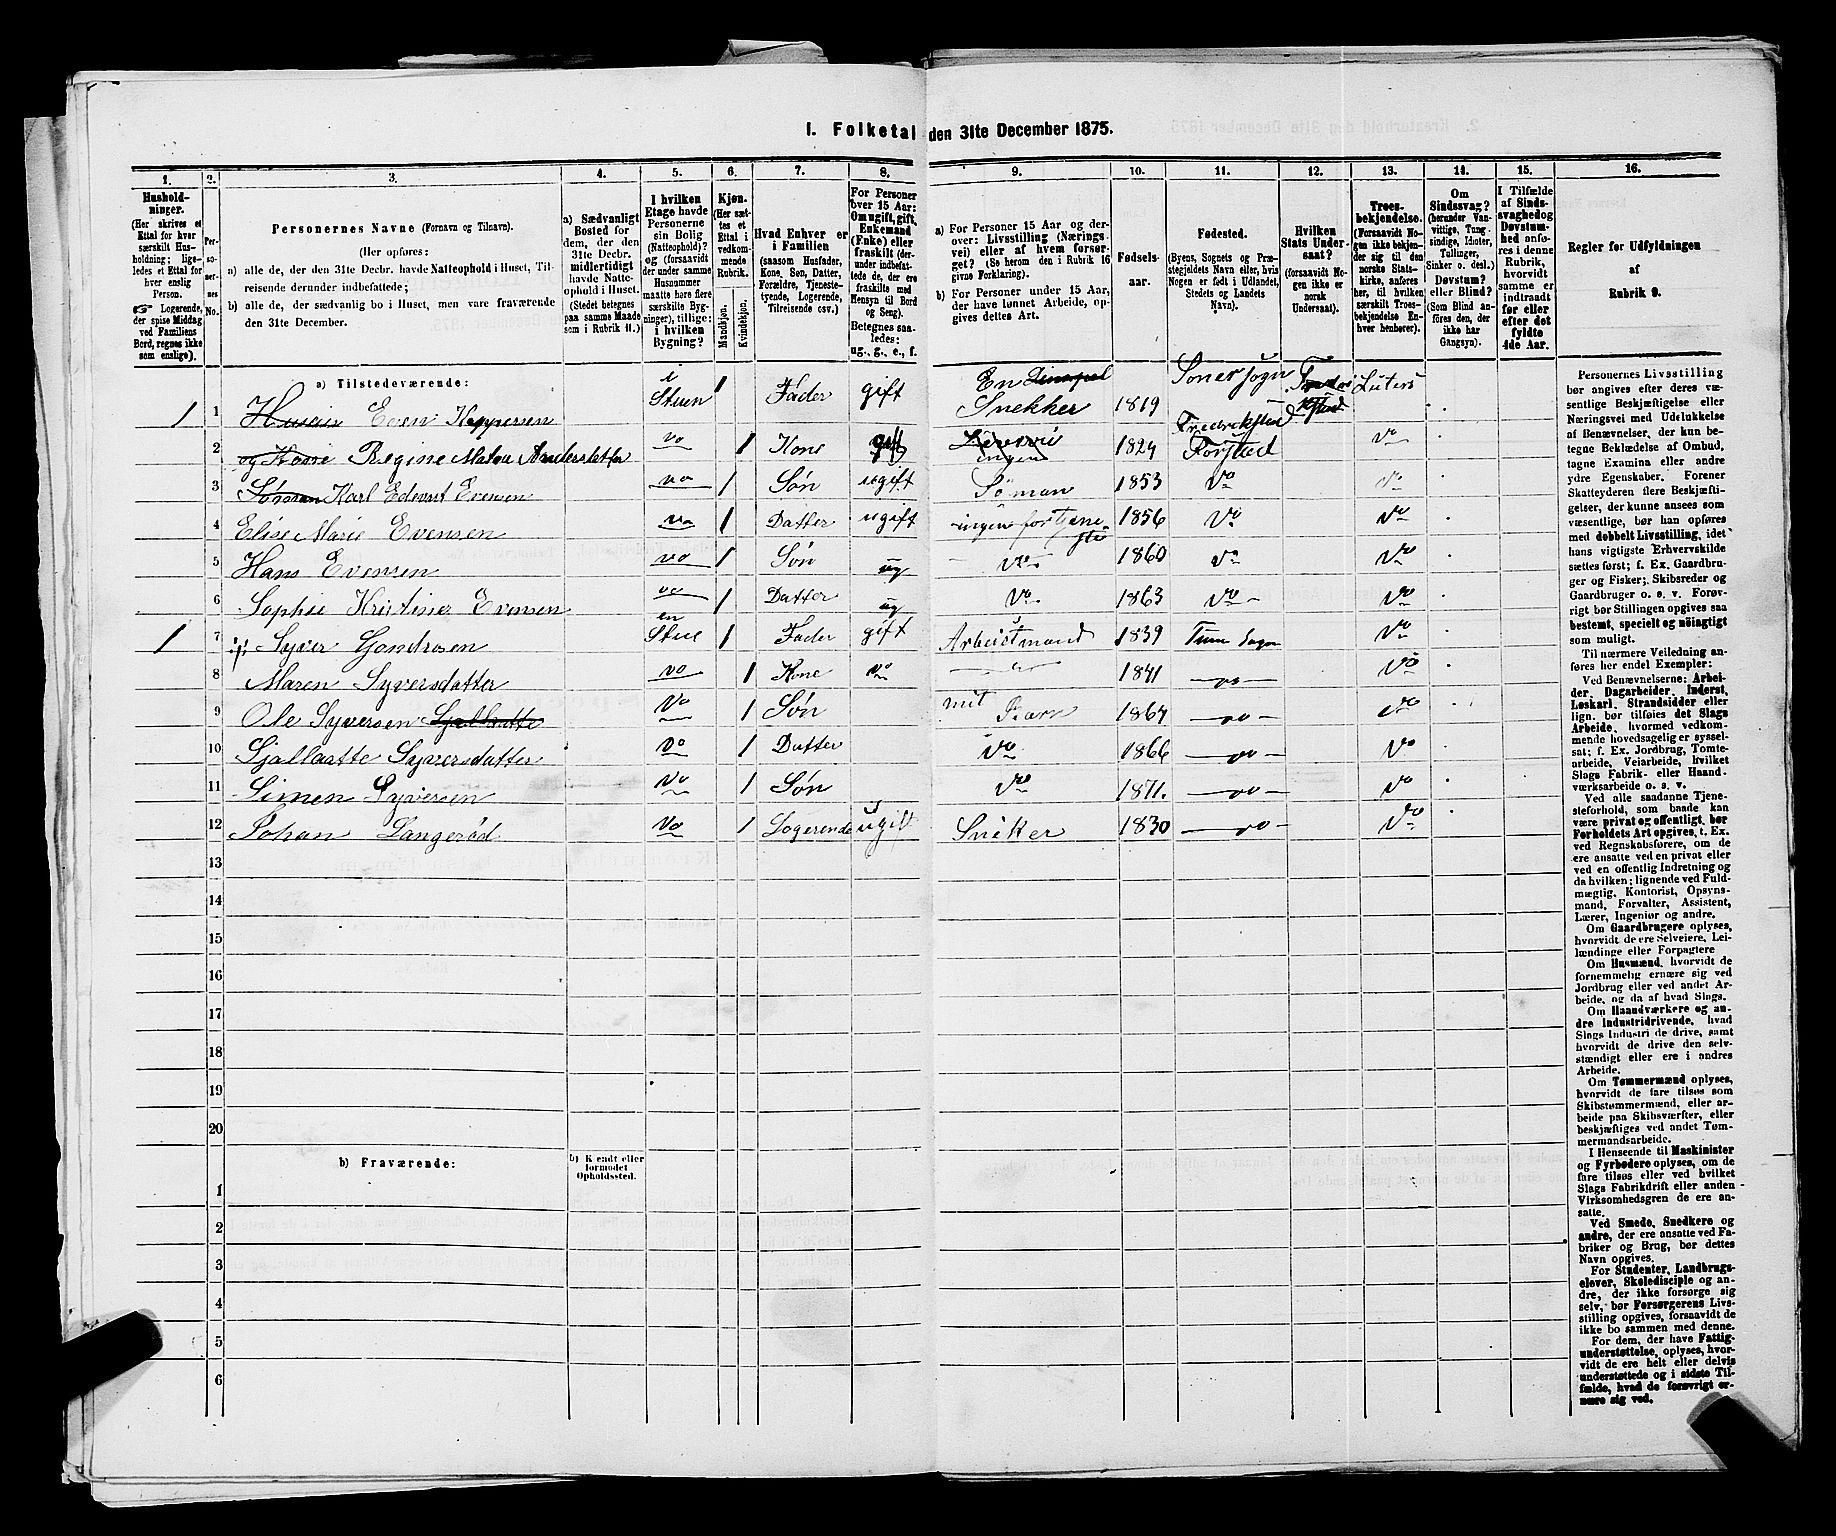 I. Folketal den 31te December 1875.
1. 2. 3. 4. 5. 6. 7. 8. 9. 10. 11. 12. 13. 14. 15. 16.
Hushold-
ninger.
(Her skrives et
Ettal for hver
særskilt Hus-
holdning; lige-
ledes et Ettal for
hver enslig
Person.
Logerende,
der spise Middag
ved Familiens
Bord, regnes ikke
som enslige).
Per-
so-
ner-
nes
No.
Personernes Navne (Fornavn og Tilnavn).
(Her opføres:
a) alle de, der den 31te Decbr. havde Natteophold i Huset, Til-
reisende derunder indbefattede;
b) alle de, der sædvanlig bo i Huset, men vare fraværende
den 31te December.
a) Sædvanligt
Bosted for
dem, der den
31te Decbr.
midlertidigt
havde Natte-
ophold i Huset.
(Stedet betegnes
paa samme Maade
som i Rubrik 11.)
I hvilken
Etage havde
Personerne
sin Bolig
(Natteophold)?
og (forsaavidt
der under samme
Husnummer
maatte høre flere
særskilte Byg-
ninger), tillige:
i hvilken
Bygning?
Kjøn.
(Her sæt-
tes et
Ettal i
vedkom-
mende
Rubrik.
Mandkjøn.
Kvindekjøn.
Hvad Enhver er
i Familien
(saasom Husfader,
Kone, Søn, Datter,
Forældre, Tjeneste-
tyende, Logerende,
Tilreisende osv.)
For Personer
over 15 Aar:
Om ugift, gift,
Enkemand
(Enke) eller
fraskilt (der-
under indbefat-
tede de, der ere
fraskilte med
Mensyn til Bord
og Seng).
Betegnes saa-
ledes:
ug., g., e., f.
a) For Personer 15 Aar og der-
over: Livsstilling (Nærings
vei) eller af hvem forsør-
get? (Se herom den i Rubrik 16
givne Forklaring).
b) For Personer under 15 Aar,
der have lønnet Arbeide, op-
gives dettes Art.
Fødsels-
aar.
Fødested.
(Byens, Sognets og Præ-
stegjeldets Navn eller, hvis
Nogen er født i Udlandet,
Stedets og Landets
Navn).
Hvilken
Stats Under-
saat?
(forsaavidt No-
gen ikke er
norsk
Undersaat).
Troes-
bekjendelse.
(Forsaavidt No-
gen ikke bekjen-
der sig til den
norske Stats-
kirke, anføres
her, til hvilken
særskilt Troes-
bekjendelse En-
hver henhører).
Om
Sindssvag?
(herunder Van-
vittige, Tung-
sindige, Idioter,
Tullinger,
Sinker o. desl.)
Døvstum?
eller Blind?
(Som Blind an-
føres den, der
ikke har
Gangsyn).
I Tilfælde
af Sinds-
svaghed og
Døvstum-
hed anfø-
res i denne
Rubrik,
hvorvidt
samme er
indtraadt
før eller
efter det
fyldte
4de Aar.
Regler for Udfyldningen
af
Rubrik 9.
a) Tilstedeværende:
1 1 Even Keppersen i Stuen 1 Fader gift En Snekker 1819 Soner sogn Luters
2 og Kone Regine Andersdatter vo 1 Kone gift ingen 1824 Fredrikstad Forstad Vo
3 Karl Edevrt Evensen vo 1 Søn ugift Søman 1853 Vo Vo
4 Elise Marie Evensen vo 1 Datter ugift ingen fortjene ste 1856 Vo Vo
5 Hans Evensen vo 1 Søn ug Vo 1860 Vo Vo
6 Sophie Kristine Evensen vo 1 Datter ug Vo 1863 Vo Vo
1 7 Syver Gondrosen en Stue 1 Fader gift Arbeidsmand 1839 Tune Sogn Vo
8 Maren Syversdatter vo 1 Kone vo 1841 vo Vo
9 Ole Syversen Vo 1 Søn mit Barn 1864 vo vo
10 Sjallaatte Syversdatter Vo 1 Datter Vo 1866 vo Vo
11 Simen Syversen Vo 1 Søn Vo 1871. vo Vo
12 Johan Langerød Vo 1 Logerende ugift Sneker 1830 vo Vo
13
14
15
16
17
18
19
20
b) Fraværende:
b) Kjendt eller
formodet
Opholdssted.
1
2
3
4
5
6
Personernes Livsstilling
bør angives efter deres væ-
sentlige Beskjæftigelse eller
Næringsvei med Udelukkelse
af Benævnelser, der kun be-
tegne Beklædelse af Ombud,
tagne Examina eller andre
ydre Egenskaber. Forener
Skatteyderen flere Beskjæfti-
gelser, der kunne ansees som
væsentlige, bør han opføres
med dobbelt Livsstilling, idet
hans vigtigste Erhvervskilde
sættes først; f. Ex. Gaardbru-
ger og Fisker; Skibsreder og
Gaardbruger o. s. v. Forøv-
rigt bør Stillingen opgives saa
bestemt, specielt og nøiagtigt
som muligt.
Til nærmere Veiledning an-
føres her endel Exempler:
Ved Benævnelserne: Arbei-
der, Dagarbeider, Inderst,
Løskarl, Strandsidder eller
lign. bør tilføies det Slags
Arbeide, hvormed vedkom-
mende hovedsagelig er syssel-
sat; f. Ex. Jordbrug, Tomte-
arbeide, Veiarbeide, hvilket
Slags Fabrik- eller Haand-
værksarbeide o. s. v.
Ved alle saadanne Tjene-
steforhold, som baade kan
være privat og offentligt, bør
Forholdets Art opgives, t. Ex.
ved Regnskabsførere, om de
ere ansatte ved en privat eller
ved en offentlig Indretning og
da hvilken; lignende ved Fuld-
mægtig, Kontorist, Opsyns-
mand, Forvalter, Assistent,
Lærer, Ingeniør og andre.
Om Gaardbrugere oplyses,
hvorvidt de ere Selveiere, Lei-
lændinge eller Forpagtere
Om Husmænd, hvorvidt de
fornemmelig ernære sig ved
Jordbrug eller ved andet Ar-
beide, og da af hvad Slags.
Om Haandværkere og an-
dre Industridrivende, hvad
Slags Industri de drive, samt
hvorvidt de drive den selv-
stændigt eller ere i andres
Arbeide.
Om Tømmermænd oplyses,
hvorvidt de fare tilsøs som
Skibstømmermænd, eller ar-
beide paa Skibsværfter, eller
beskjæftiges ved andet Tøm-
mermandsarbeide.
I Henseende til Maskinister
og Fyrbødere oplyses, om de
fare tilsøs eller ved hvilket
Slags Fabrikdrift eller anden
Virksomhedsgren de ere an-
satte.
Ved Smede, Snedkere og
andre, der ere ansatte ved Fa-
briker og Brug, bør dettes
Navn opgives.
For Studenter, Landbrugs-
elever, Skoledisciple og an-
dre, der ikke forsørge sig
selv, bør Forsørgerens Livs-
stilling opgives, forsaavidt de
ikke bo sammen med denne.
For dem, der have Fattig-
understøttelse, oplyses, hvor-
vidt de ere helt eller delvis
understøttede og i sidste Til-
fælde, hvad de forøvrigt er-
nære sig ved.